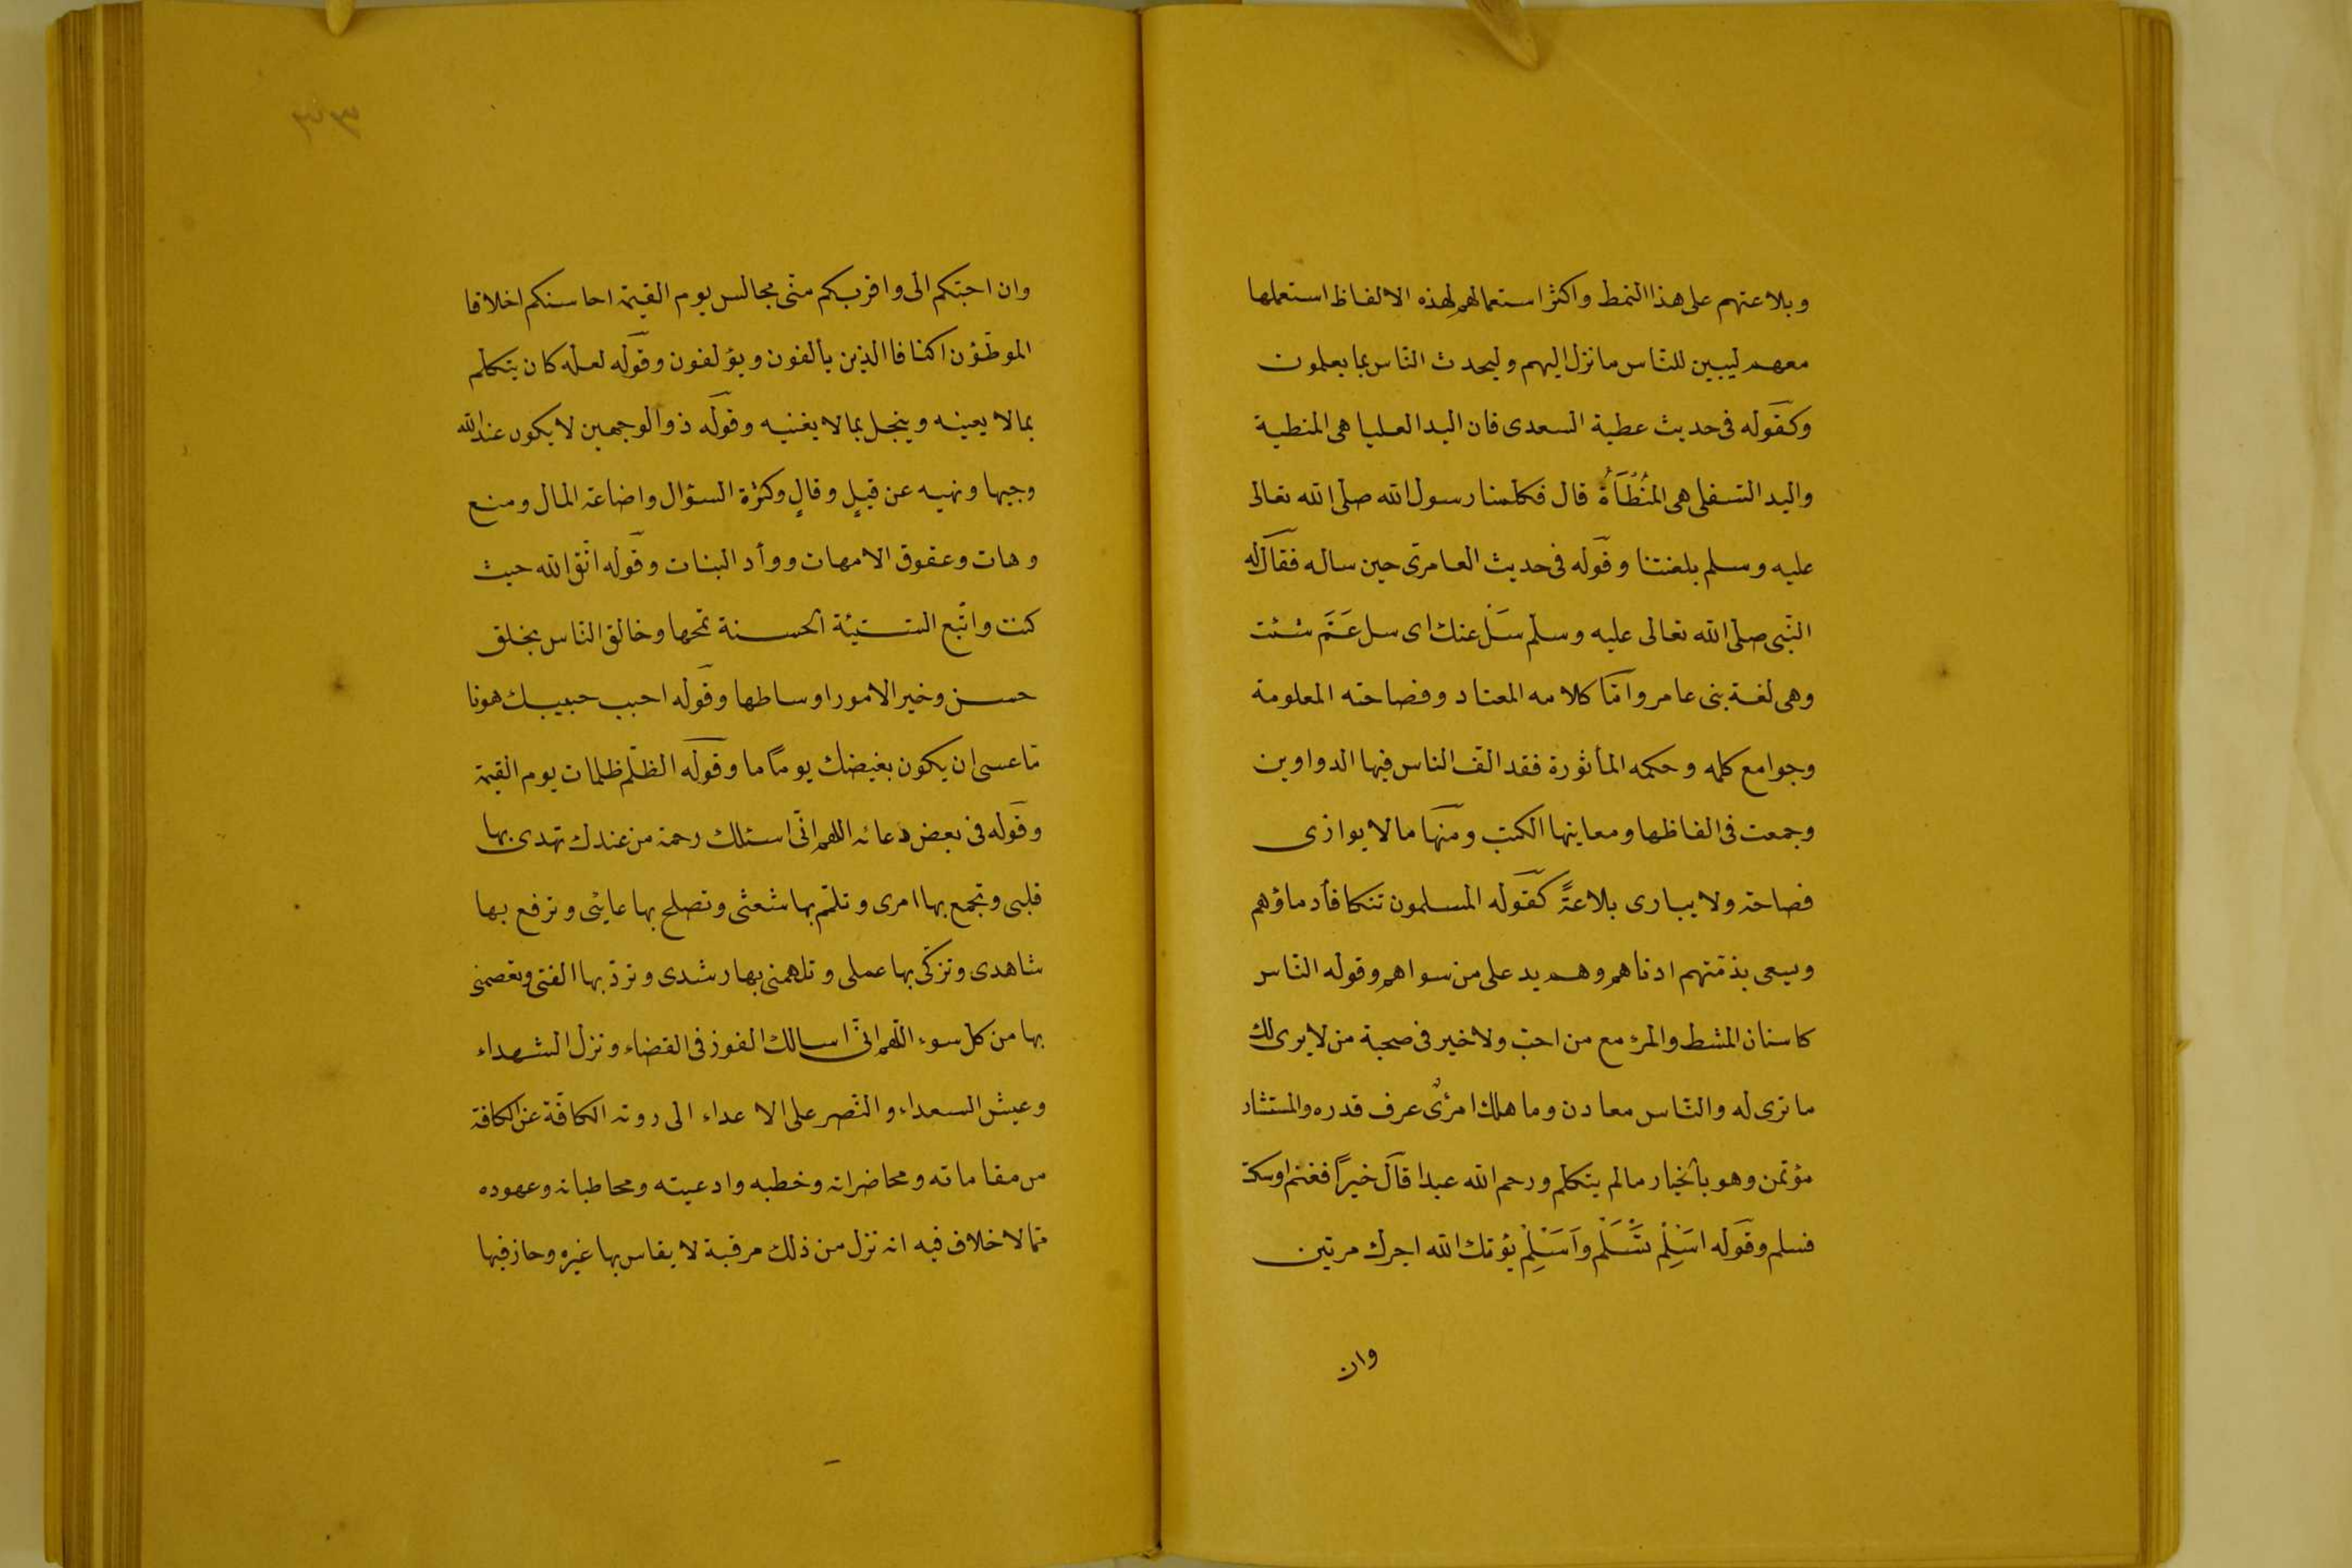 وبلاعتهم على هذا النمط واكثر استعمالهم لهذه الالفاظ استعملها
معهم ليبين للنّاس ما نزل اليهم وليحدث النّاس بما يعلمون
وكقوله فى حديث عطية السعدى فان اليد العليا هى المنطية
واليد السّفلى هى المُنْطَاَةُ قال فكلمنا رسول الله صلى الله تعالى
عليه وسلم بلغتنا وقوله فى حديث العامرى حين ساله فقال له
النّبى صلى الله تعالى عليه وسلم سَلْ عنك اى سل عَمَّ شئت
وهى لغة بنى عامر وامّا كلامه المعتاد وفصاحته المعلومة
وجوامع كلمه وحكمه المأثورة فقد الّف الناس فيها الدواوين
وجمعت فى الفاظها ومعاينها الكتب ومنها مالا يوازى
فصاحة ولا يبارى بلاعةً كقوله المسلمون تتكافأ دماؤهم
ويسعى بذمّتهم ادناهم وهم يد على من سواهم وقوله النّاس
كاسنان المشط والمرء مع من احبّ ولا خير فى صحبة من لا يرى لك
ما ترى له والنّاس معادن وما هلك امرئٌ عرف قدره والمستشار
مؤتمن وهو بالخيار مالم يتكلم ورحم الله عبدا قال خيراً فغنم اوسكت
فسلم وقوله اَسْلِمْ تَسْلَمْ واَسْلِمْ يؤتك الله اجرك مرتين
وان
وان احبّكم الى واقربكم منّى مجالس يوم القيمة احاسنكم اخلاقا
الموطّؤن اكنافا الذين يألفون ويؤلفون وقوله لعلّه كان يتكلم
بمالا يعينه ويبخل بمالا يغنيه وقوله ذو الوجهين لا يكون عند الله
وجيها ونهيه عن قيلٍ وقالٍ وكثرة السؤال واضاعة المال ومنع
وهات وعقوق الامهات ووأد البنات وقوله اتّق الله حيث
كنت واتّبع السّيئة الحسنة تمحها وخالق النّاس بخلق
حسن وخير الامور اوساطها وقوله احبب حبيبك هونا
مّا عسى ان يكون بغيضك يومًا ما وقوله الظّلم ظلمات يوم القيمة
وقوله فى بعض دعائه اللهم انّى اسئلك رحمة من عندك تهدى بها
قلبى وتجمع بها امرى وتلمّ بها شعثى وتصلح بها غايبى وترفع بها
شاهدى وتزكّى بها عملى وتلهمنى بها رشدى وتردّ بها الفتى وتعصمنى
بها من كل سوء اللّهم انّى اسالك الفوز فى القضاء ونزل الشهداء
وعيش السعداء والنّصر على الاعداء الى روته الكافّة عن الكافة
من مقاماته ومحاضراته وخطبه وادعيته ومحاطباته وعهوده
ممّا لا خلاف فيه انه نزل من ذلك مرقبة لا يقاس بها غيره وحاز فيها